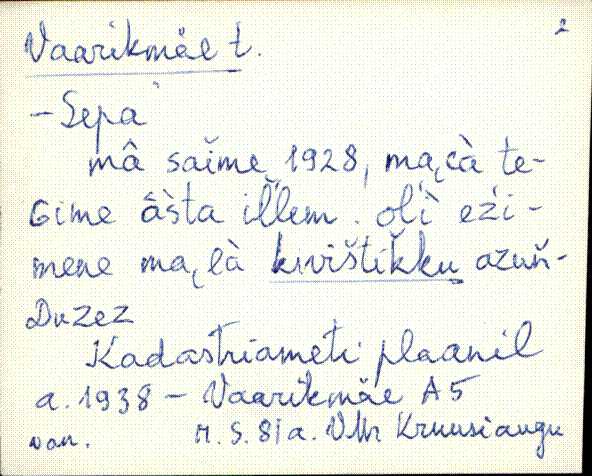 2
Vaarikmäe t.
– Sepa
mâ saĭme 1928, ma,cà te-
Gime ầsta iľlem. oľì eźi-
mene ma,là kivištikku azuň-
Duzez
Kadastriameti plaanil
a. 1938 – Vaarikmäe A5
van. M. S. 81 a. VMr Kruusiaugu